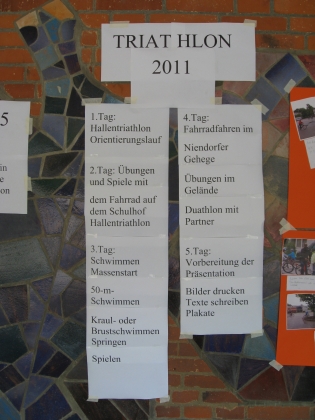 TRIAT HLON
2011
1.Tag:
Hallentriathlon
Orientierungslauf
2.Tag: Übungen
und Spiele mit
dem Fahrrad auf
dem Schulhof
Hallentriathlon
3.Tag:
Schwimmen
Massenstart
50-m-
Schwimmen
Kraul- oder
Brustschwimmen
Springen
Spielen
4.Tag:
Fahrradfahren im
Niendorfer
Gehege
Übungen im
Gelände
Duathlon mit
Partner
5.Tag:
Vorbereitung der
Präsentation
Bilder drucken
Texte schreiben
Plakate
5
in
e
on